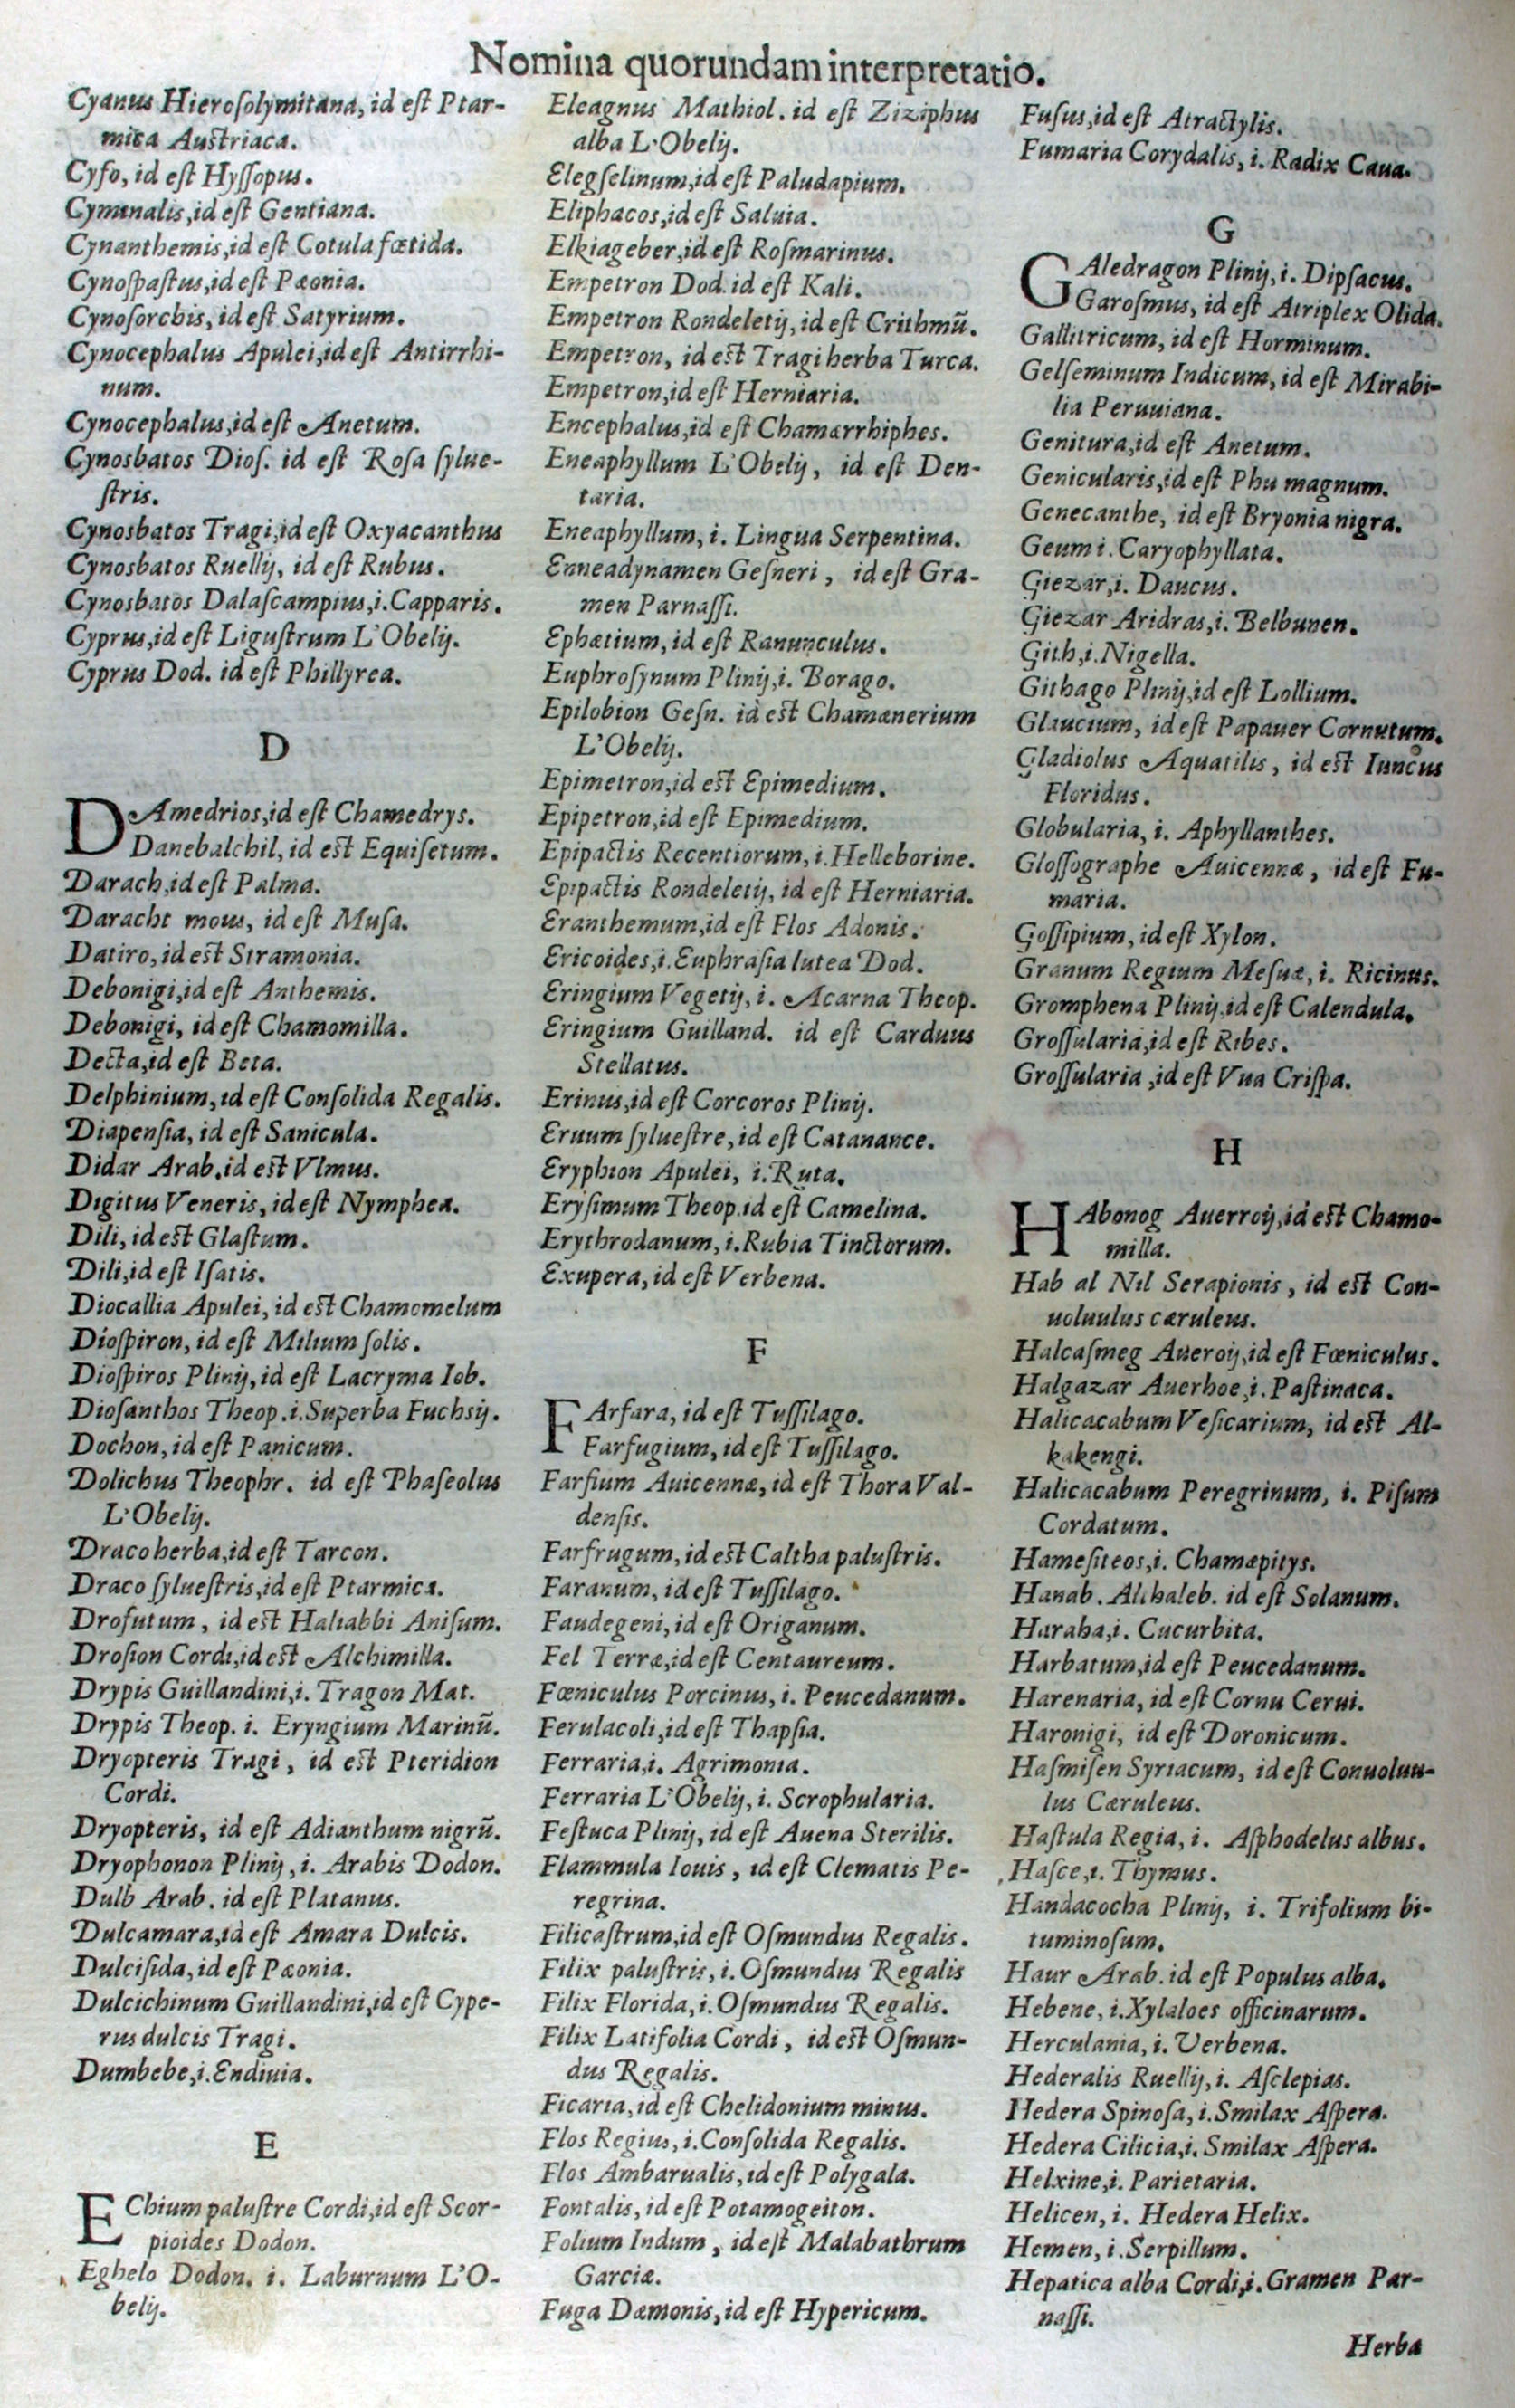 Nomina quorundam interpretatio.
Cyanus Hierosolymitana, id est Ptar-
mica Austriaca.
Cyfo, id est Hyssopus.
Cyminalis, id est Gentiana.
Cynanthemis, id est Cotula fœtida.
Cynospastus, id est Pæonia.
Cynosorchis, id est Satyrium.
Cynocephalus Apulei, id est Antirrhi-
num.
Cynocephalus, id est Anetum.
Cynosbatos Dios. id est Rosa sylue-
stris.
Cynosbatos Tragi, id est Oxyacanthus
Cynosbatos Ruellij, id est Rubus.
Cynosbatos Dalascampius, i. Capparis.
Cyprus, id est Ligustrum L'Obelij.
Cyprus Dod. id est Phillyrea.
D
DAmedrios, id est Chamedrys.
Danebalchil, id est Equisetum.
Darach, id est Palma.
Daracht mous, id est Musa.
Datiro, id est Stramonia.
Debonigi, id est Anthemis.
Debonigi, id est Chamomilla.
Decta, id est Beta.
Delphinium, id est Consolida Regalis.
Diapensia, id est Sanicula.
Didar Arab. id est Vlmus.
Digitus Veneris, id est Nymphea.
Dili, id est Glastum.
Dili, id est Isatis.
Diocallia Apulei, id est Chamomelum
Diospiron, id est Milium solis.
Diospiros Plinij, id est Lacryma Iob.
Diosanthos Theop. i. Superba Fuchsij.
Dochon, id est Panicum.
Dolichus Theophr. id est Phaseolus
L'Obelij.
Draco herba, id est Tarcon.
Draco syluestris, id est Ptarmica.
Drofutum, id est Haliabbi Anisum.
Drosion Cordi, id est Alchimilla.
Drypis Guillandini, i. Tragon Mat.
Drypis Theop. i. Eryngium Marinũ.
Dryopteris Tragi, id est Pteridion
Cordi.
Dryopteris, id est Adianthum nigrũ.
Dryophonon Plinij, i. Arabis Dodon.
Dulb Arab. id est Platanus.
Dulcamara, id est Amara Dulcis.
Dulcisida, id est Pæonia.
Dulcichinum Guillandini, id est Cype-
rus dulcis Tragi.
Dumbebe, i. Endiuia.
E
EChium palustre Cordi, id est Scor-
pioides Dodon.
Eghelo Dodon. i. Laburnum L'O-
belij.
Eleagnus Mathiol. id est Ziziphus
alba L'Obelij.
Elegselinum, id est Paludapium.
Eliphacos, id est Saluia.
Elkiageber, id est Rosmarinus.
Empetron Dod. id est Kali.
Empetron Rondeletij, id est Crithmũ.
Empetron, id est Tragi herba Turca.
Empetron, id est Herniaria.
Encephalus, id est Chamærrhiphes.
Eneaphyllum L'Obelij, id est Den-
taria.
Eneaphyllum, i. Lingua Serpentina.
Enneadynamen Gesneri, id est Gra-
men Parnassi.
Ephætium, id est Ranunculus.
Euphrosynum Plinij, i. Borago.
Epilobion Gesn. id est Chamænerium
L'Obelij.
Epimetron, id est Epimedium.
Epipetron, id est Epimedium.
Epipactis Recentiorum, i. Helleborine.
Epipactis Rondeletij, id est Herniaria.
Eranthemum, id est Flos Adonis.
Ericoides, i. Euphrasia lutea Dod.
Eringium Vegetij, i. Acarna Theop.
Eringium Guilland. id est Carduus
Stellatus.
Erinus, id est Corcoros Plinij.
Eruum syluestre, id est Catanance.
Eryphion Apulei, i. Ruta.
Erysimum Theop. id est Camelina.
Erythrodanum, i. Rubia Tinctorum.
Exupera, id est Verbena.
F
FArfara, id est Tussilago.
Farfugium, id est Tussilago.
Farsium Auicennæ, id est Thora Val-
densis.
Farfrugum, id est Caltha palustris.
Faranum, id est Tussilago.
Faudegeni, id est Origanum.
Fel Terræ, id est Centaureum.
Fœniculus Porcinus, i. Peucedanum.
Ferulacoli, id est Thapsia.
Ferraria, i. Agrimonia.
Ferraria L'Obelij, i. Scrophularia.
Festuca Plinij, id est Auena Sterilis.
Flammula Iouis, id est Clematis Pe-
regrina.
Filicastrum, id est Osmundus Regalis.
Filix palustris, i. Osmundus Regalis
Filix Florida, i. Osmundus Regalis.
Filix Latifolia Cordi, id est Osmun-
dus Regalis.
Ficaria, id est Chelidonium minus.
Flos Regius, i. Consolida Regalis.
Flos Ambarualis, id est Polygala.
Fontalis, id est Potamogeiton.
Folium Indum, id est Malabathrum
Garciæ.
Fuga Dæmonis, id est Hypericum.
Fusus, id est Atractylis.
Fumaria Corydalis, i. Radix Caua.
G
GAledragon Plinij, i. Dipsacus.
Garosmus, id est Atriplex Olida.
Gallitricum, id est Horminum.
Gelseminum Indicum, id est Mirabi-
lia Peruuiana.
Genitura, id est Anetum.
Genicularis, id est Phu magnum.
Genecanthe, id est Bryonia nigra.
Geum i. Caryophyllata.
Giezar, i. Daucus.
Giezar Aridras, i. Belbunen.
Gith, i. Nigella.
Githago Plinij, id est Lollium.
Glaucium, id est Papauer Cornutum.
Gladiolus Aquatilis, id est Iuncus
Floridus.
Globularia, i. Aphyllanthes.
Glossographe Auicennæ, id est Fu-
maria.
Gossipium, id est Xylon.
Granum Regium Mesuæ, i. Ricinus.
Gromphena Plinij, id est Calendula.
Grossularia, id est Ribes.
Grossularia, id est Vua Crispa.
H
HAbonog Auerroij, id est Chamo-
milla.
Hab al Nil Serapionis, id est Con-
uoluulus cæruleus.
Halcasmeg Aueroij, id est Fœniculus.
Halgazar Auerhoe, i. Pastinaca.
Halicacabum Vesicarium, id est Al-
kakengi.
Halicacabum Peregrinum, i. Pisum
Cordatum.
Hamesiteos, i. Chamæpitys.
Hanab. Althaleb. id est Solanum.
Haraha, i. Cucurbita.
Harbatum, id est Peucedanum.
Harenaria, id est Cornu Cerui.
Haronigi, id est Doronicum.
Hasmisen Syriacum, id est Conuoluu-
lus Cæruleus.
Hastula Regia, i. Asphodelus albus.
Hasce, i. Thymus.
Handacocha Plinij, i. Trifolium bi-
tuminosum.
Haur Arab. id est Populus alba.
Hebene, i. Xylaloes officinarum.
Herculania, i. Verbena.
Hederalis Ruellij, i. Asclepias.
Hedera Spinosa, i. Smilax Aspera.
Hedera Cilicia, i. Smilax Aspera.
Helxine, i. Parietaria.
Helicen, i. Hedera Helix.
Hemen, i. Serpillum.
Hepatica alba Cordi, i. Gramen Par-
nassi.
Herba